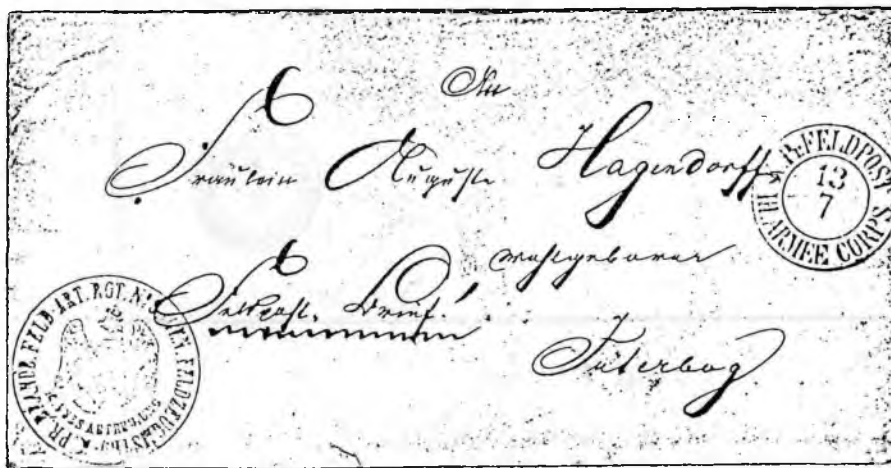 An
Fräulein Auguste Hagendorff
wohlgeboren
Feldpost. Brief.
Jüterbog
K.PR.FELDPOST
13
7
III ARMEE CORPS.
K. PR. BRANDB. FELD-ART. RGT. No
FELDZEUGMSTR.